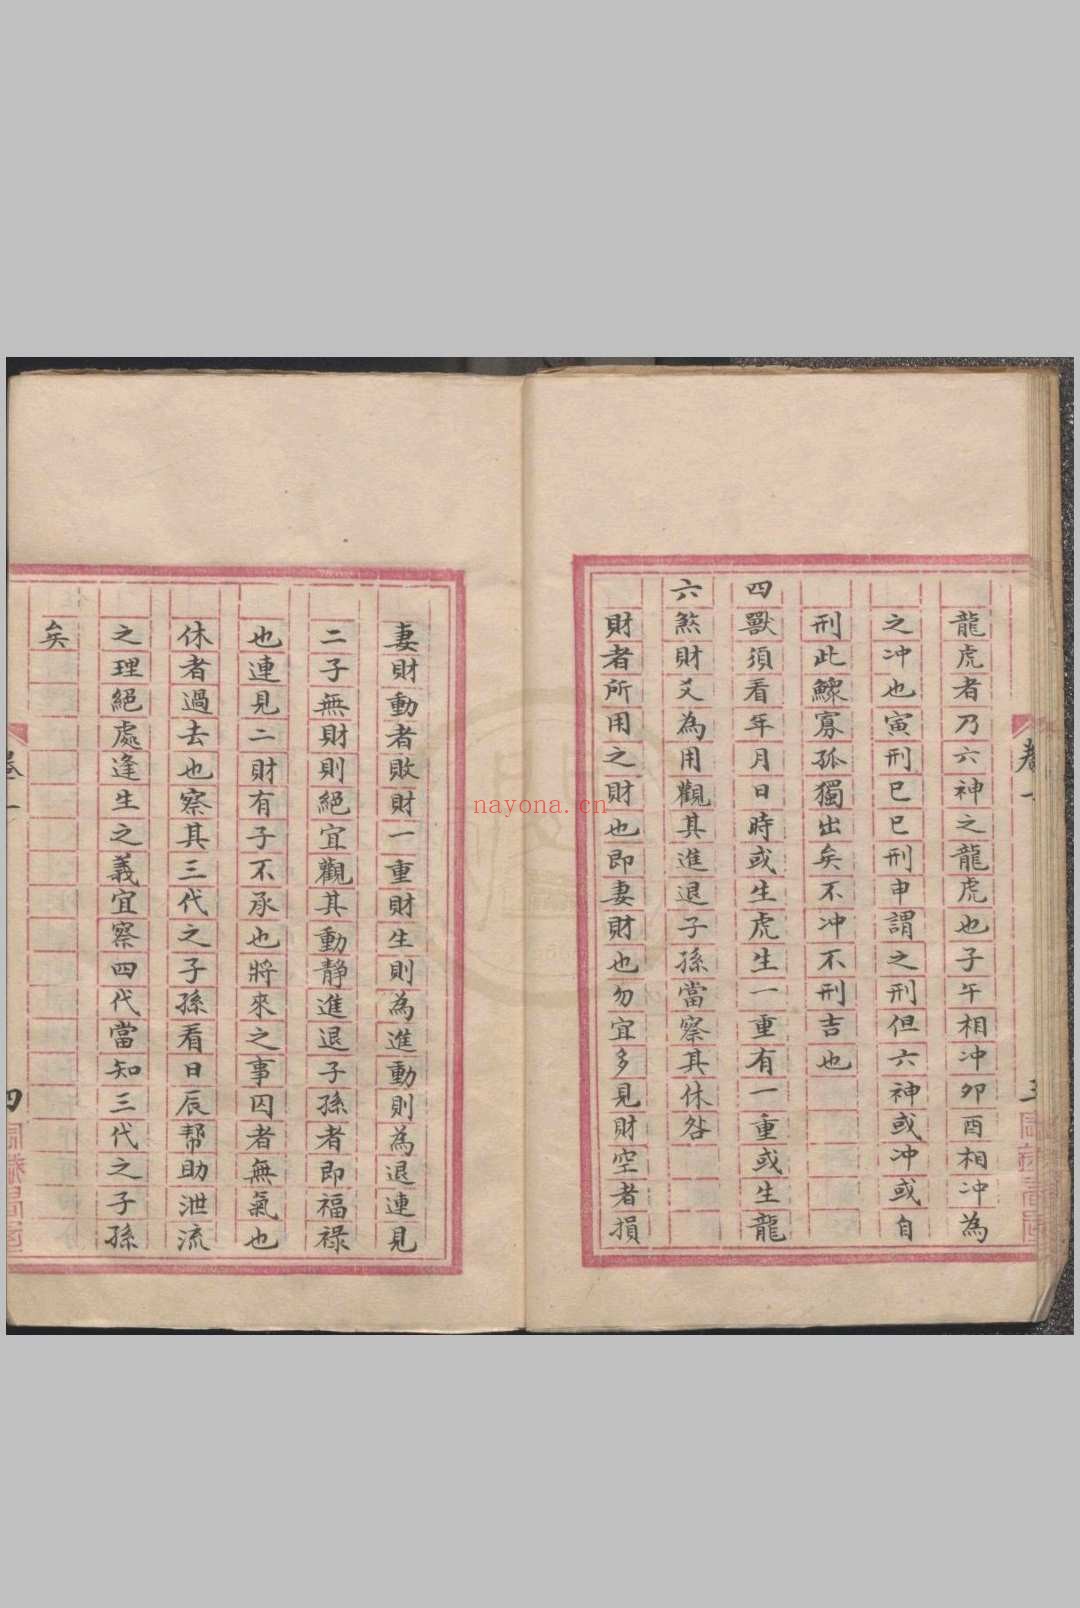 卷一
龍虎者乃六神之龍虎也子午相冲卯酉相冲為
之冲也寅刑巳巳刑申謂之刑但六神或冲或自
刑此鰥寡孤獨出矣不冲不刑吉也
四獸須看年月日時或生虎生一重有一重或生龍
六煞財爻為用觀其進退子孫當察其休咎
財者所用之財也即妻財也勿宜多見財空者損
妻財動者敗財一重財生則為進動則為退連見
二子無財則絕宜觀其動靜進退子孫者即福祿
也連見二財有子不承也將來之事囚者無氣也
休者過去也察其三代之子孫看日辰幫助泄流
之理絕處逢生之義宜察四代當知三代之子孫
矣
卷一
四
nayona.cn